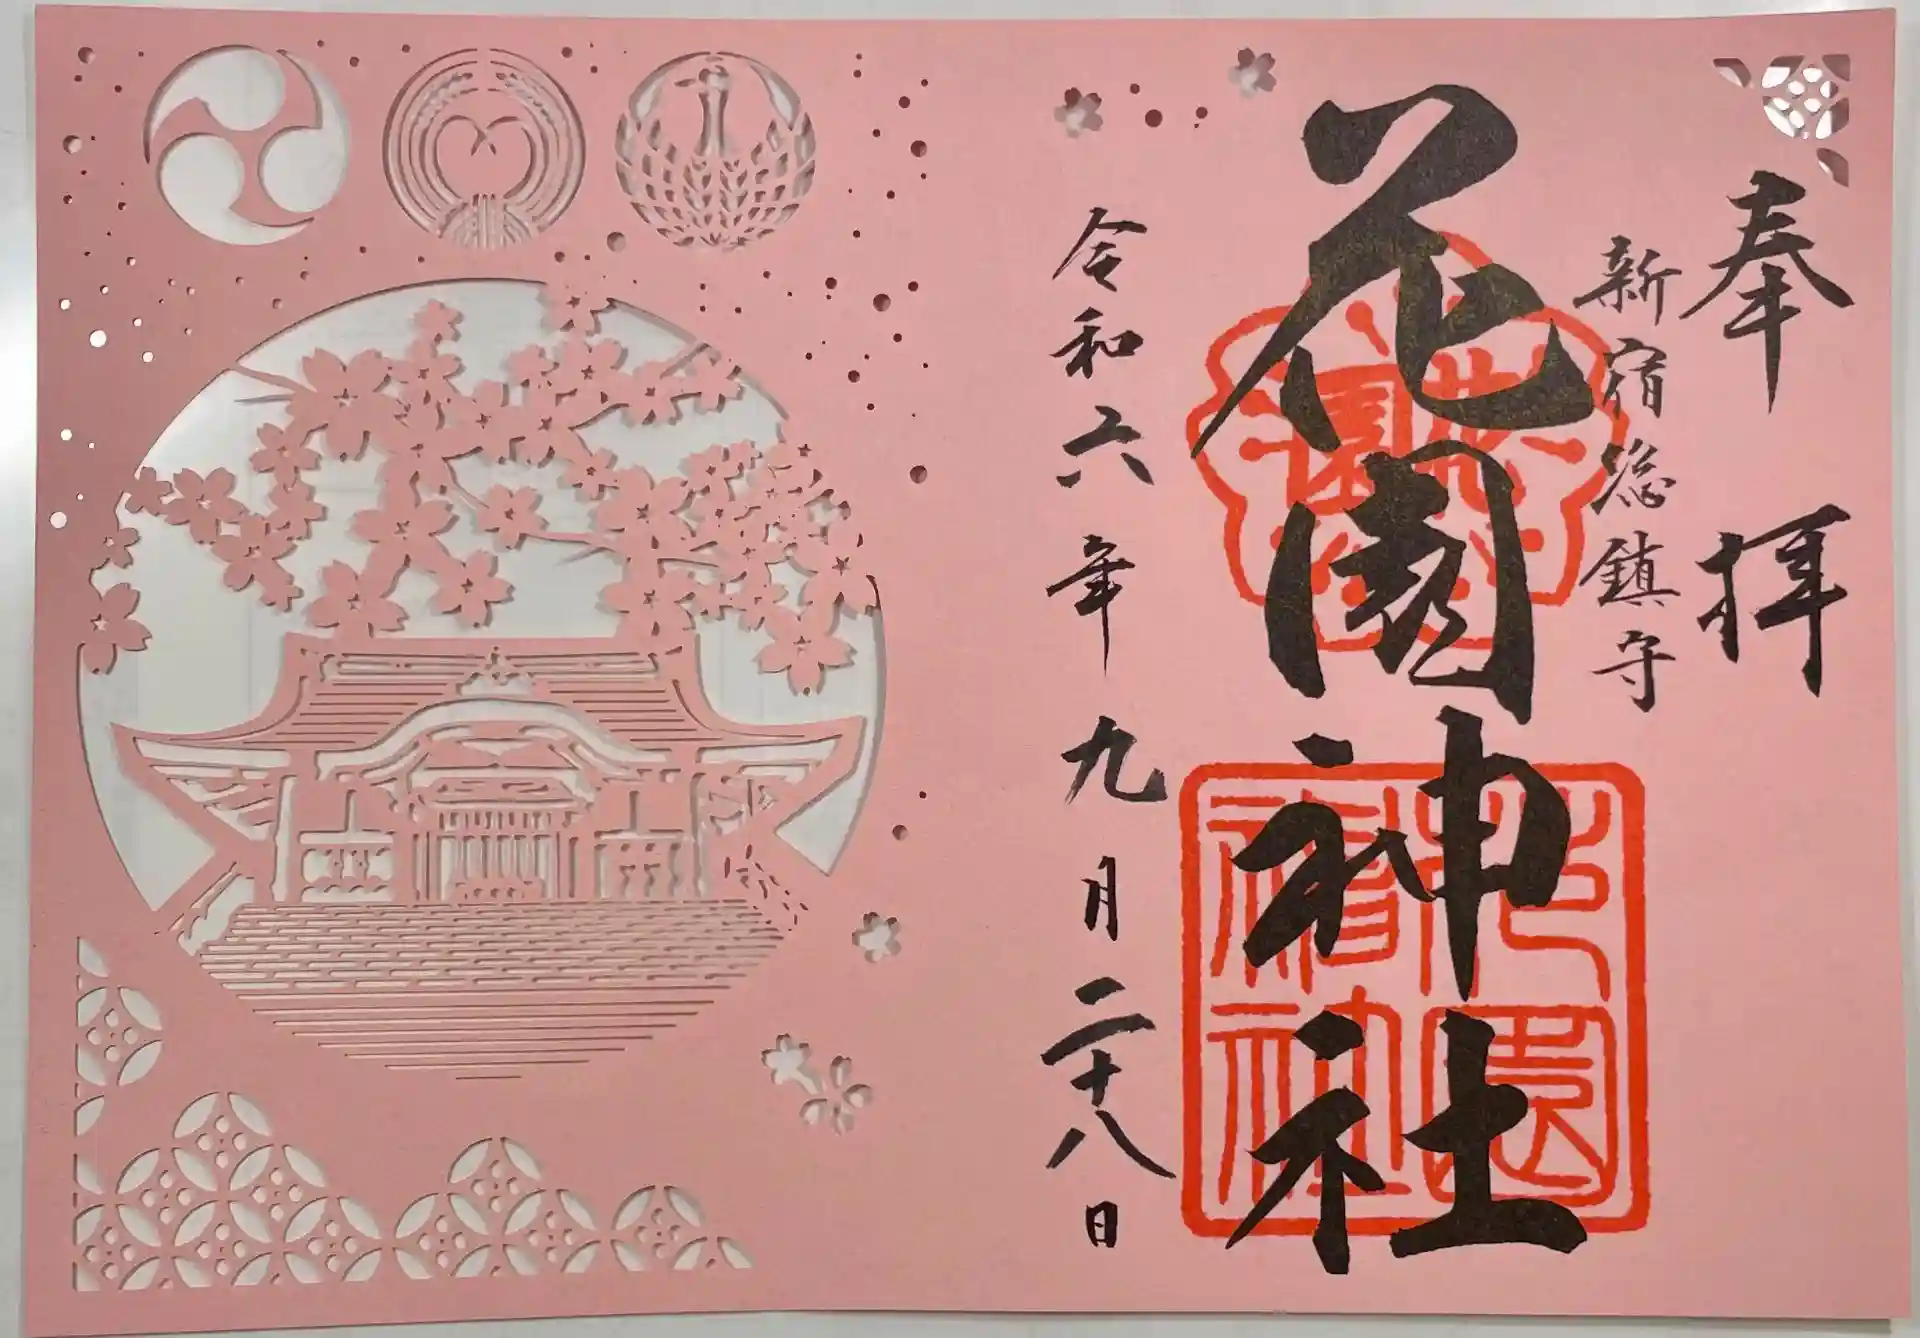 奉拝
新宿総鎮守
花園神社
令和六年九月二十八日
花園
花園神社